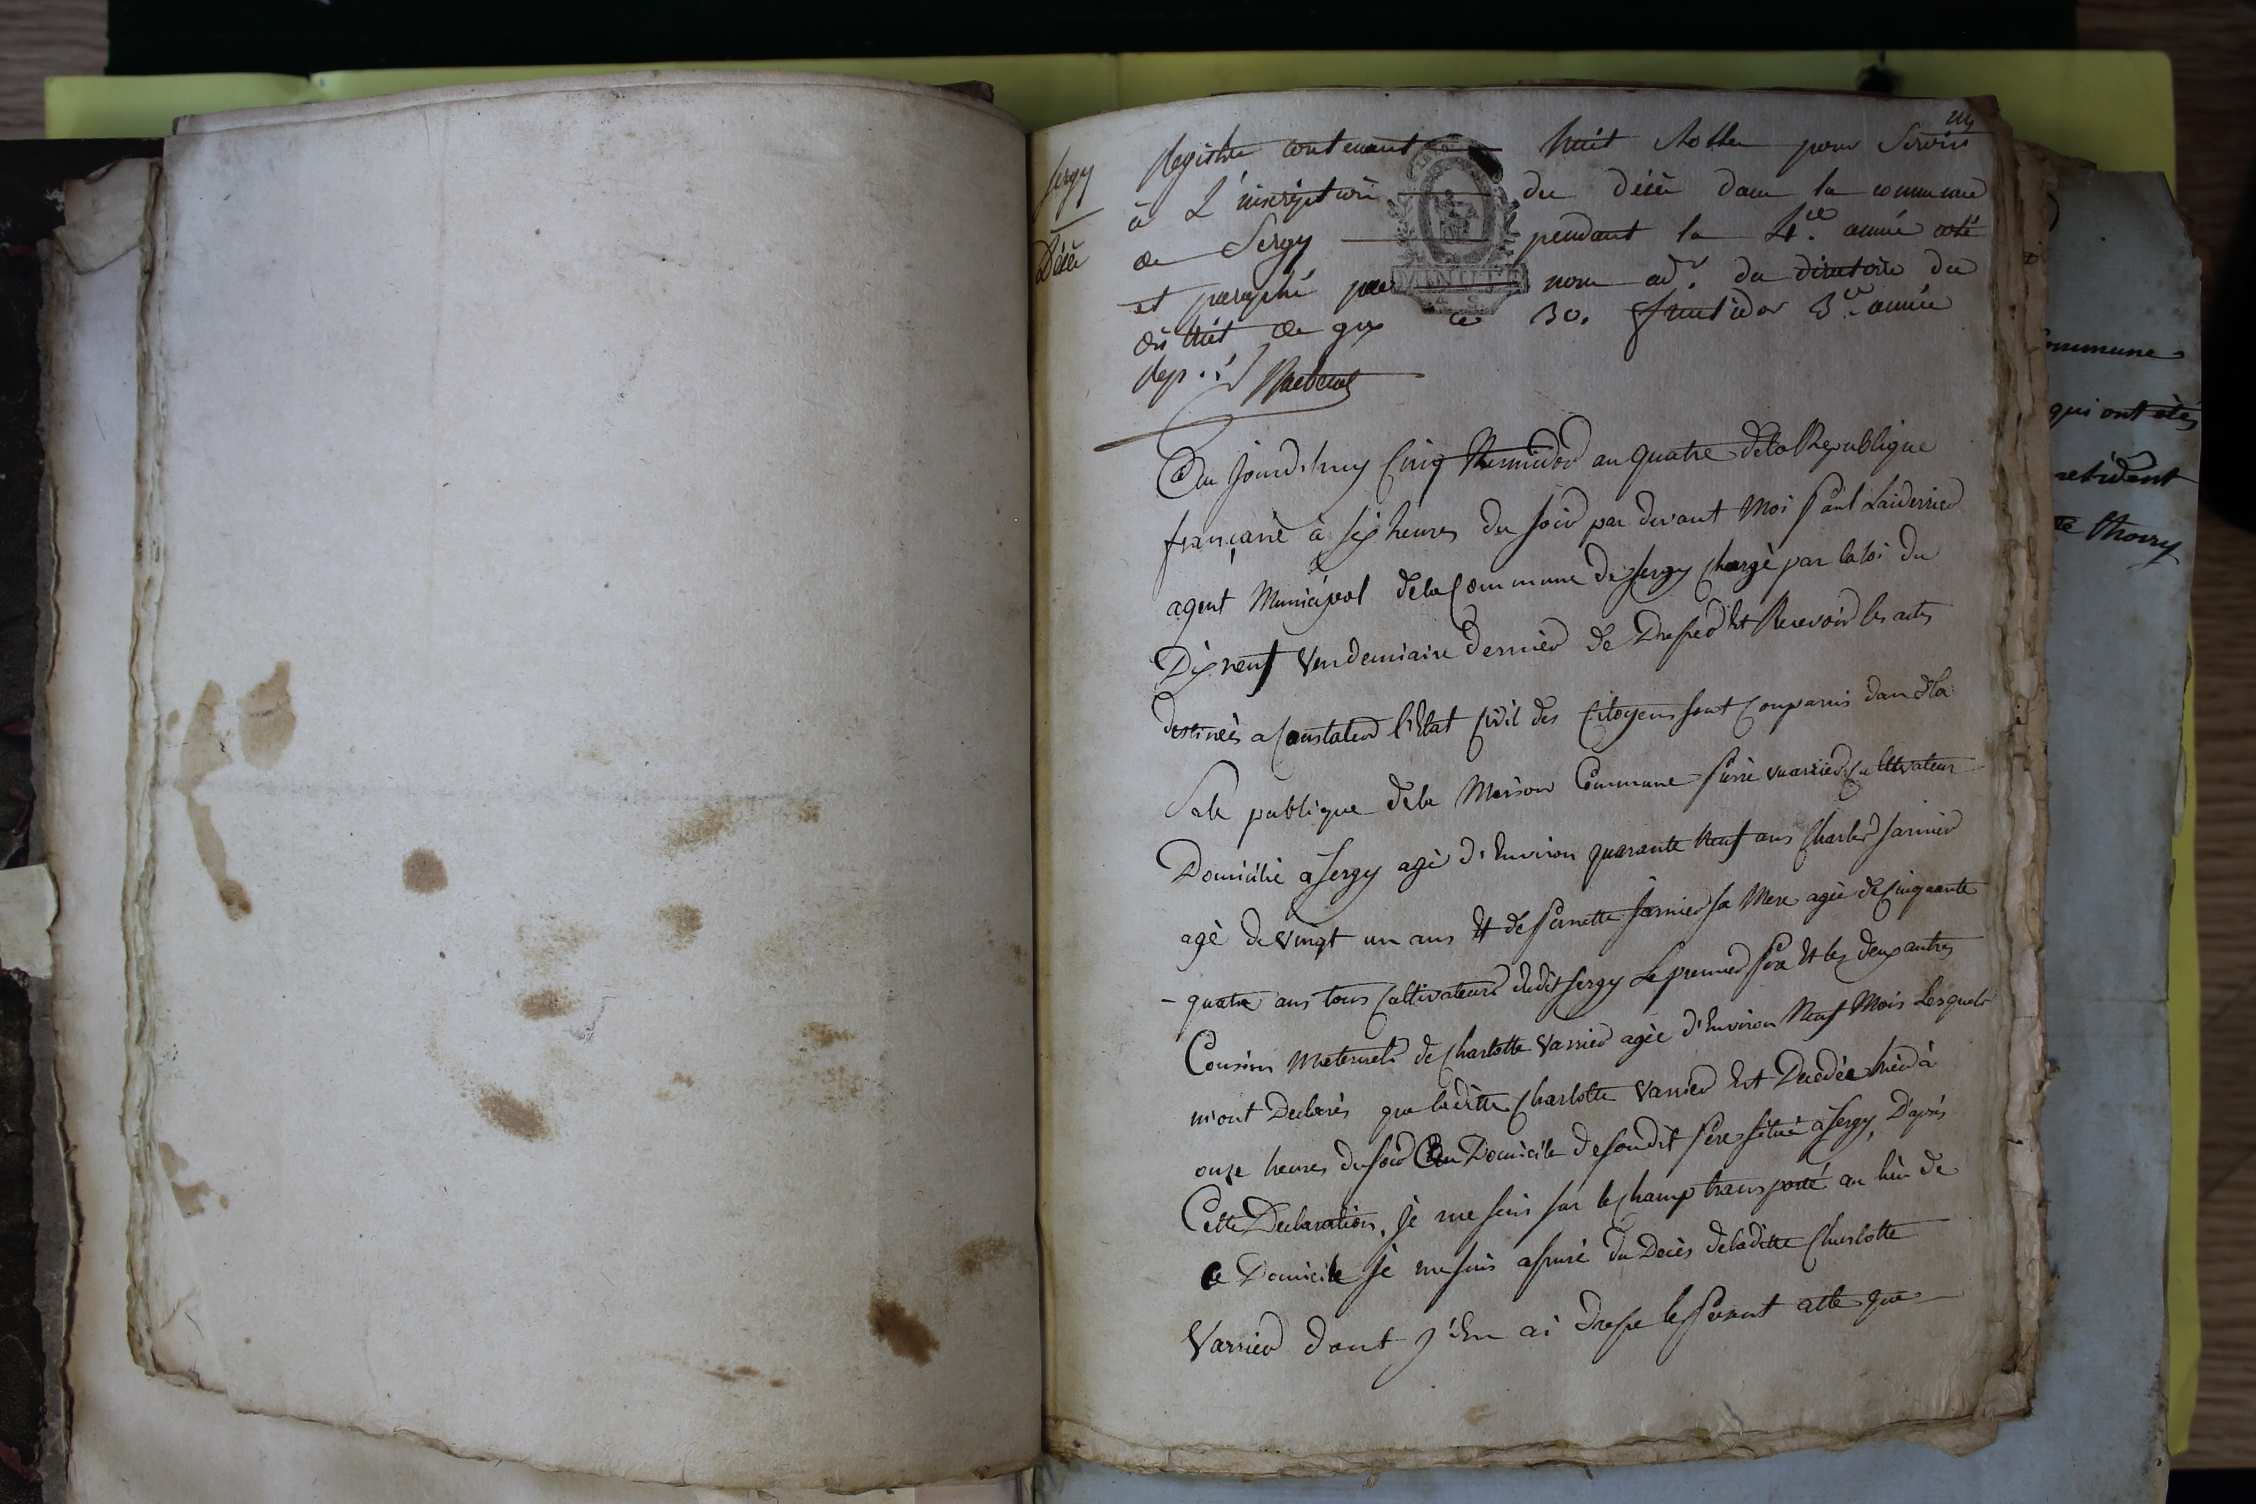 Sergy
Décès
Registre contenant huit rolles pour servir
à L'inscription des décès dans la commune
de Sergy pendant la 4.e année coté
et paraphé par nous ad.r du directoire du
district de gex ce 30. fructidor 3.e année
rep.
Au Jourd'huy Cinq thermidor an quatre de la Republique
françaisè à six heures du soir par devant Moi Paul
agent Municipal de la Commune de Sergy Chargè par la loi du
Dix neuf Vendemiaire dernier de Dresser Et Recevoir les actes
destinées a Constater l'Etat Civil des Citoyens sont Comparus dans la
Sale publique de la Maison Commune Pierre Varrier Cultivateur
Domicilié a Sergy agé d'Environ quarante Neuf ans Charles Jarnier
agé de vingt un ans Et de Pernette Jarnier sa Mere agée de Cinquante
- quatre ans tous Cultivateurs dudit Sergy Le premier Pere Et les deux autres
Cousins Maternels de Charlotte Varrier agée d'Environ Neuf Mois Lesquels
m'ont Declarés que laditte Charlotte Varrier Est Decedée hier à
onze heures du soir Au Domicile de sondit Pere situé à Sergy, D'après
Cette Declaration, Je me suis sur le Champ transporté au lieu de
ce Domicile Je me suis assuré du Decès de laditte Charlotte
Varrier dont j'En ai Dressé le Present acte que
ommune
qui ont étés
residant
Thoiry